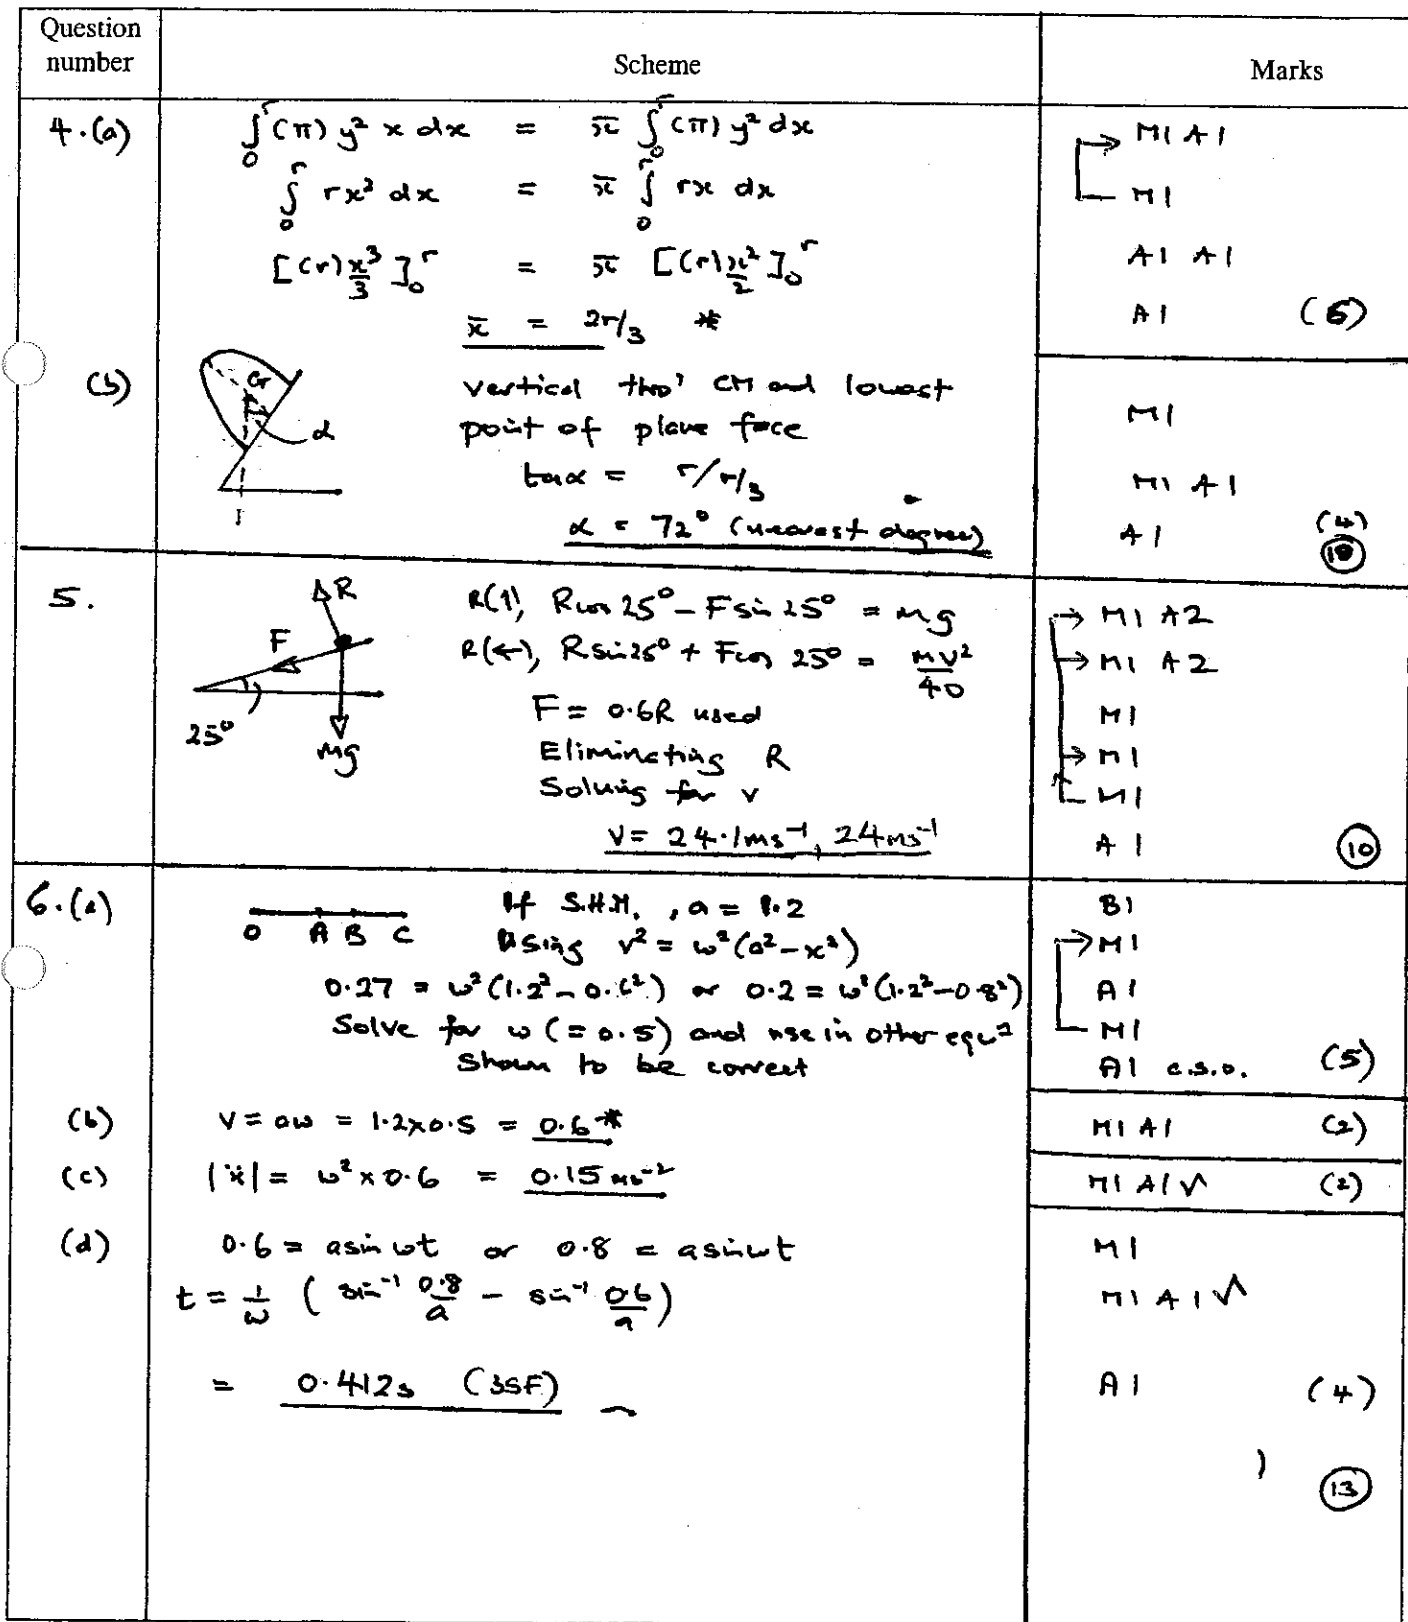 Question number
Scheme
Marks
4.(a)
∫₀ʳ (π) y² x dx = x̄ ∫₀ʳ (π) y² dx
M1 A1
∫₀ʳ rx² dx = x̄ ∫₀ʳ rx dx
M1
[(r) x³/3]₀ʳ = x̄ [(r) x²/2]₀ʳ
A1 A1
x̄ = 2r/3 *
A1 (6)
(b)
G
α
vertical thro' CM and lowest
point of plane face
M1
tan α = r/r/3
M1 A1
α = 72° (nearest degree)
A1 (4)
(10)
5.
R
F
25°
mg
R(↑), R cos 25° – F sin 25° = mg
M1 A2
R(←), R sin 25° + F cos 25° = mv²/40
M1 A2
F = 0.6R used
M1
Eliminating R
M1
Solving for v
M1
v = 24.1 ms⁻¹, 24 ms⁻¹
A1 (10)
6.(a)
O A B C
If S.H.M., a = 1.2
B1
Using v² = ω²(a² – x²)
M1
0.27 = ω²(1.2² – 0.6²) or 0.2 = ω²(1.2² – 0.8²)
A1
Solve for ω (= 0.5) and use in other equⁿ
M1
Shown to be correct
A1 c.s.o. (5)
(b)
v = aω = 1.2 x 0.5 = 0.6 *
M1 A1 (2)
(c)
|ẍ| = ω² x 0.6 = 0.15 ms⁻²
M1 A1√ (2)
(d)
0.6 = a sin ωt or 0.8 = a sin ωt
M1
t = 1/ω (sin⁻¹ 0.8/a – sin⁻¹ 0.6/a)
M1 A1√
= 0.412s (3SF)
A1 (4)
(13)